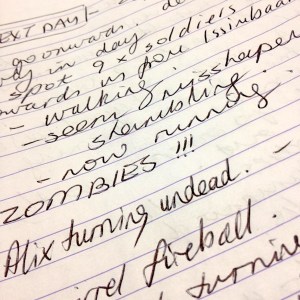 EXT DAY/-
go onwards. de
in day
spot 9x soldiers
wards us from Issinbaa
- walking.
- seem misshapen
shambling.
- now running.
ZOMBIES !!!
Alix turning undead. -
fireball.
turning